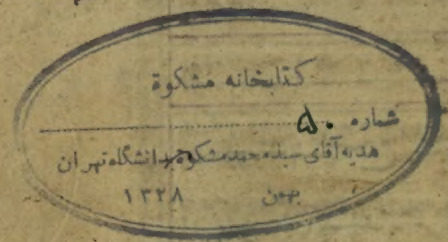 کتابخانه مشکوة
شماره ۵۰
هدیه آقای سید محمد مشکوة بدانشگاه تهران
بهمن ۱۳۲۸